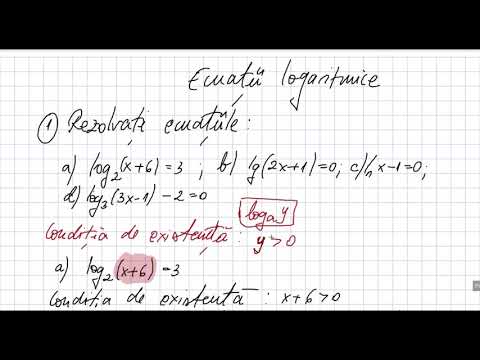 Ecuații logaritmice
① Rezolvați ecuațiile:
a) log₂(x+6)=3 ; b) lg(2x+1)=0; c) ln x-1=0;
d) log₃(3x-1)-2=0
logₐ y
Condiția de existență: y>0
a) log₂(x+6)=3
Condiția de existență: x+6>0